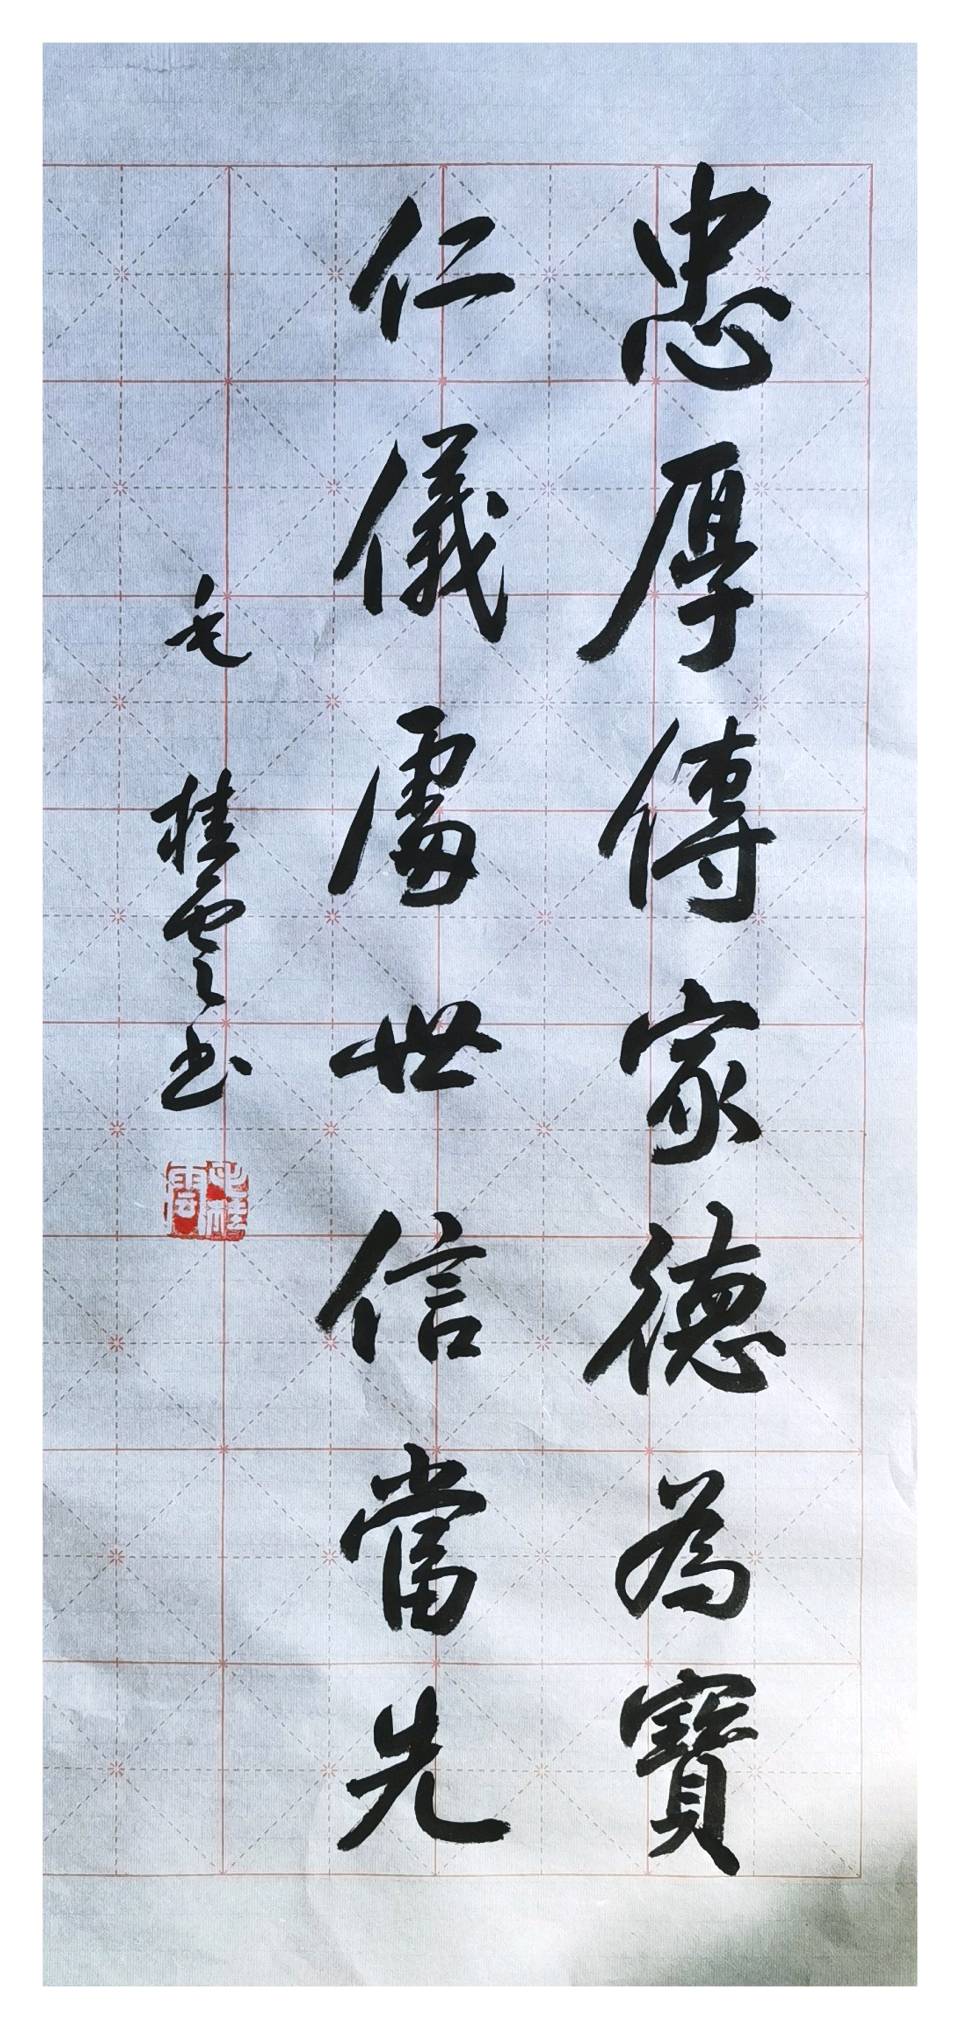 忠厚傳家德為寶
仁儀處世信當先
毛桂雲书
毛桂雲